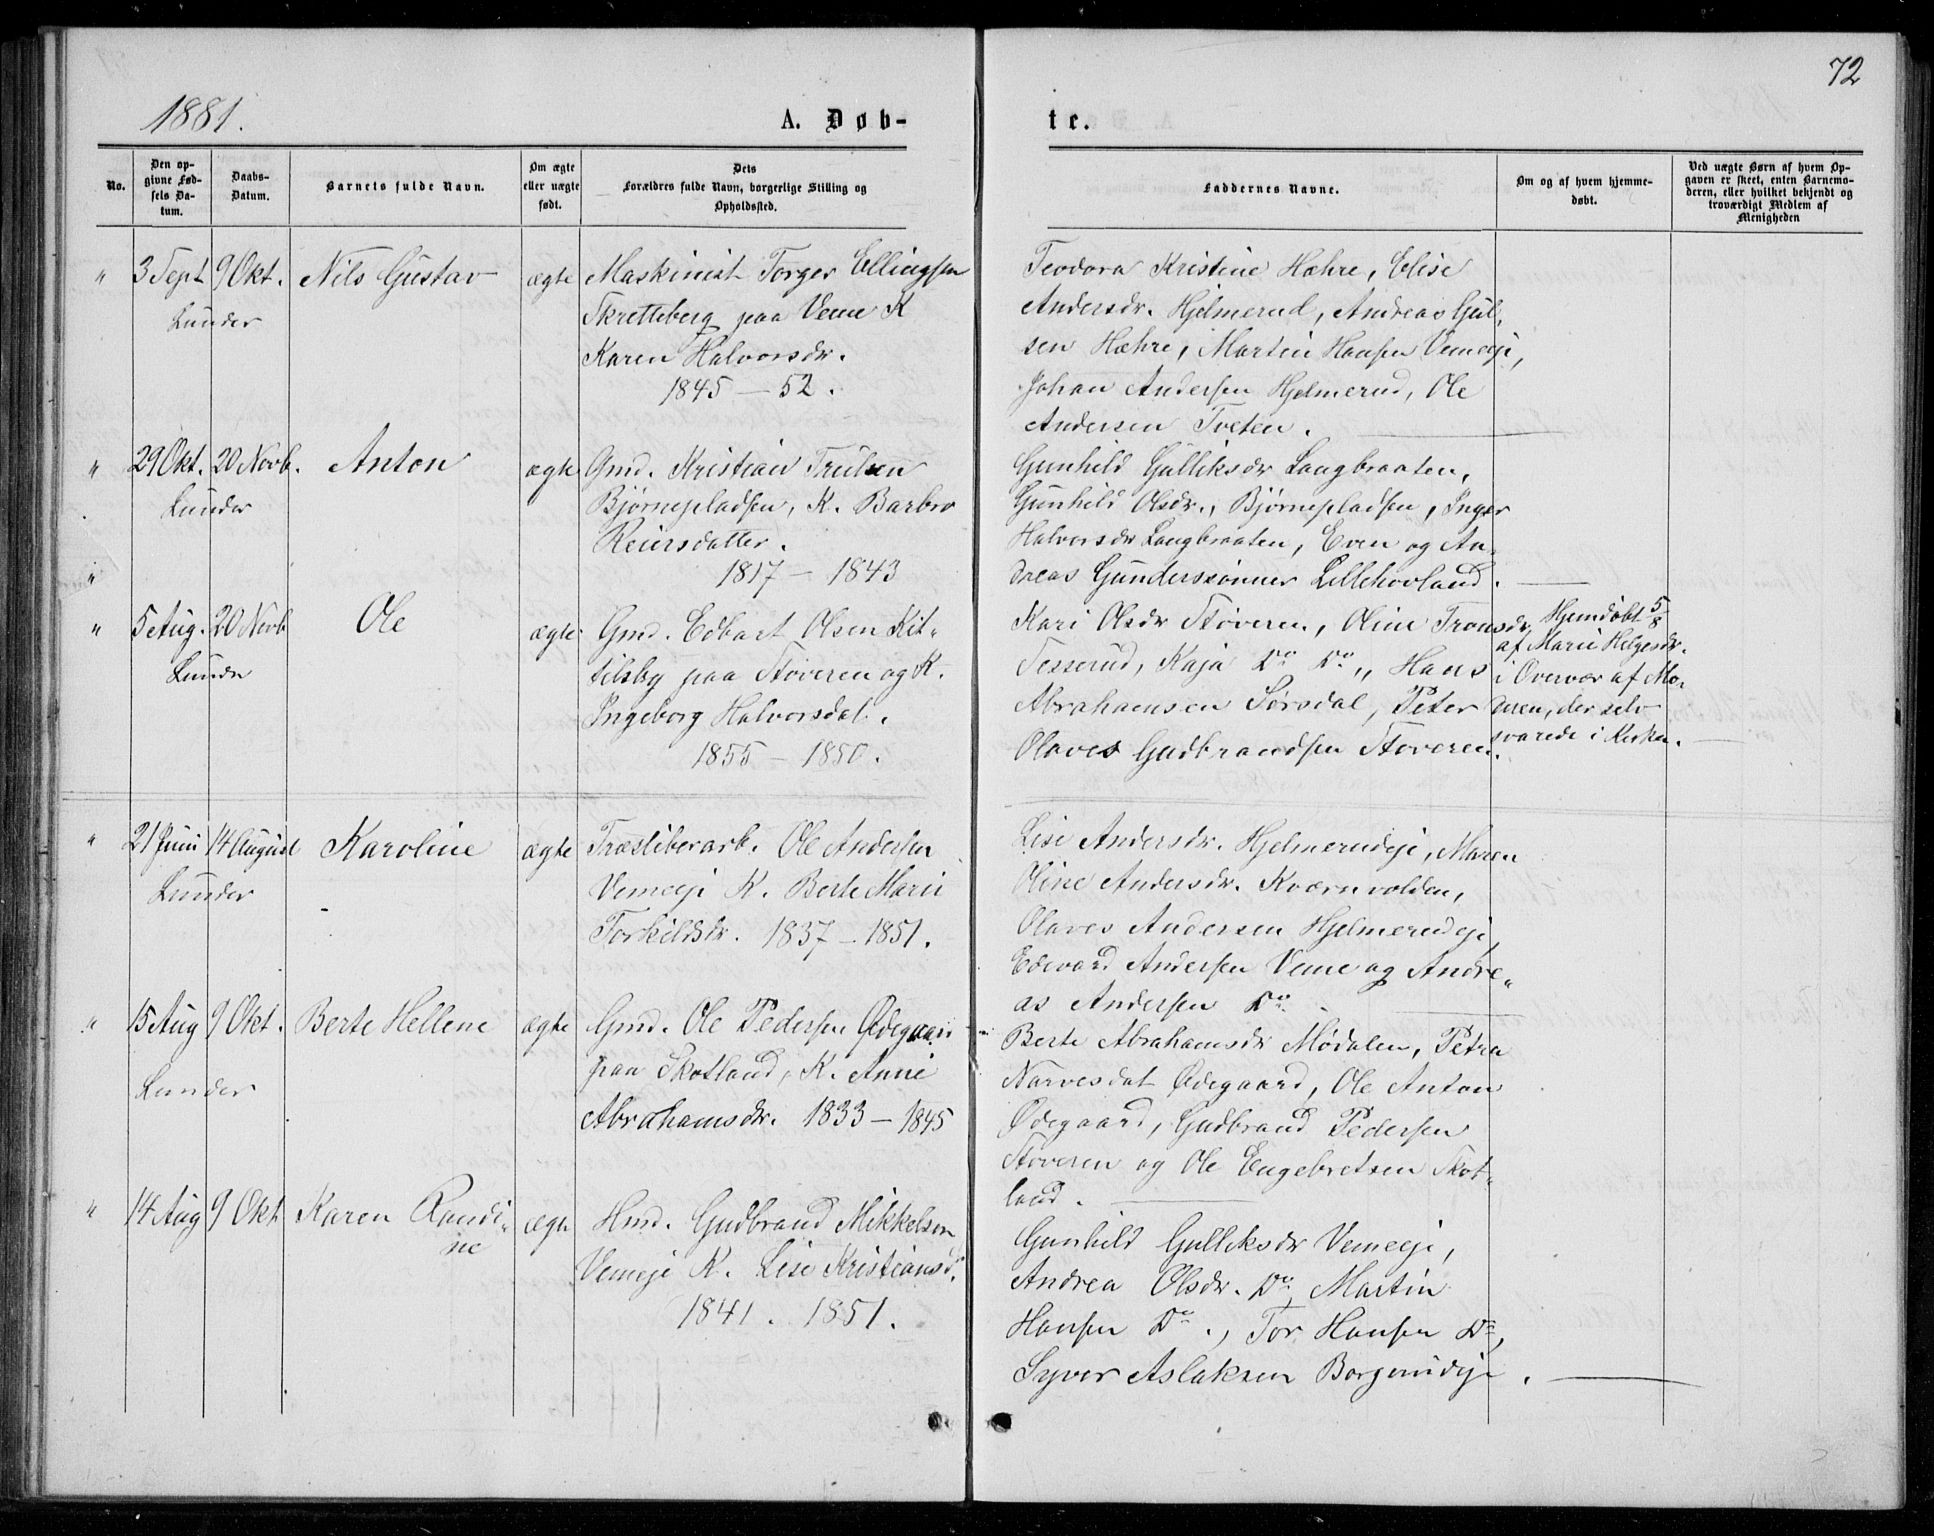 72
1881.
A. Døb-
te.
No.
Den op-
givne Fød-
sels Da-
tum.
Daabs-
Datum.
Barnets fulde Navn.
Om ægte
eller uægte
født.
Dets
Forældres fulde Navn, borgerlige Stilling og
Opholdssted.
Faddernes Navne.
Om og af hvem hjemme-
døbt.
Ved uægte Børn af hvem Op-
gaven er skeet, enten Barnemo-
deren, eller hvilket bekjendt og
troværdigt Medlem af
Menigheden
" 3 Sept 9 Okt. Nils Gustav ægte
Lunder
Maskinist Torger Ellingsen
Skretteberg paa Veme K
Karen Halvorsdr.
1845 — 52.
Teodora Kristine Hæhre, Elise
Andersdr. Hjelmerud, Andreas Gul-
sen Hæhre, Martin Hansen Vemeeje,
Johan Andersen Hjelmerud, Ole
Andersen Tveten.
" 29 Okt. 20 Novb. Anton ægte
Lunder
Gmd. Kristian Trulsen
Bjørnepladsen, K. Barbro
Reiersdatter.
1817 — 1843
Gunhild Gulliksdr Langbraaten,
Gunhild Olsdr., Bjørnepladsen, Inger
Halvorsdr Langbraaten, Even og An-
dreas Gunderssønner Lillehovland.
"
" 5 Aug. 20 Novb Ole ægte
Lundr
Gmd. Edbart Olsen Kit-
tilsby paa Støveren og K.
Ingeborg Halvorsdat.
1855 — 1850.
Kari Olsdr Støveren, Oline Tronsdr
Tesserud, Kaja Do Do, Hans
Abrahamsen Sørsdal, Peter
Olaves Gudbrandsen Støveren.
Hjemdøbt 5/8
af Marie Helgesdr.
i Overvær af Mo-
eren, der selv
svarede i Kirken.
" 21 Juni 14 August Karoline ægte
Lunder
Træsliberarb. Ole Andersen
Vemeeje K. Berte Marie
Torkildsdr. 1837 — 1851.
Lise Andersdr. Hjelmerudeje, Maren
Oline Andersdr. Kværnvolden,
Olaves Andersen Hjelmerudeje,
Edevard Andersen Veme og Andre-
as Andersen Do.
" 15 Aug 9 Okt. Berte Hellene ægte
Lunder
Gmd. Ole Pedersen Ødegaard
paa Skotland, K. Anne
Abrahamsdr. 1833 — 1845
Berte Abrahamsdr Mødalen, Petra
Narvesdat Ødegaard, Ole Anton
Ødegaard, Gudbrand Pedersen
Støveren og Ole Engebretsen Skot-
land.
" 14 Aug 9 Okt Karen Randi-
ne ægte
Hmd. Gudbrand Mikkelsen
Vemeje K. Lise Kristiansd.
1841. 1851.
Gunhild Gulliksdr Vemeeje,
Andrea Olsdr. Do, Martin
Hansen Do., Tor Hansen Do,
Syver Aslaksen Borgerudeje.